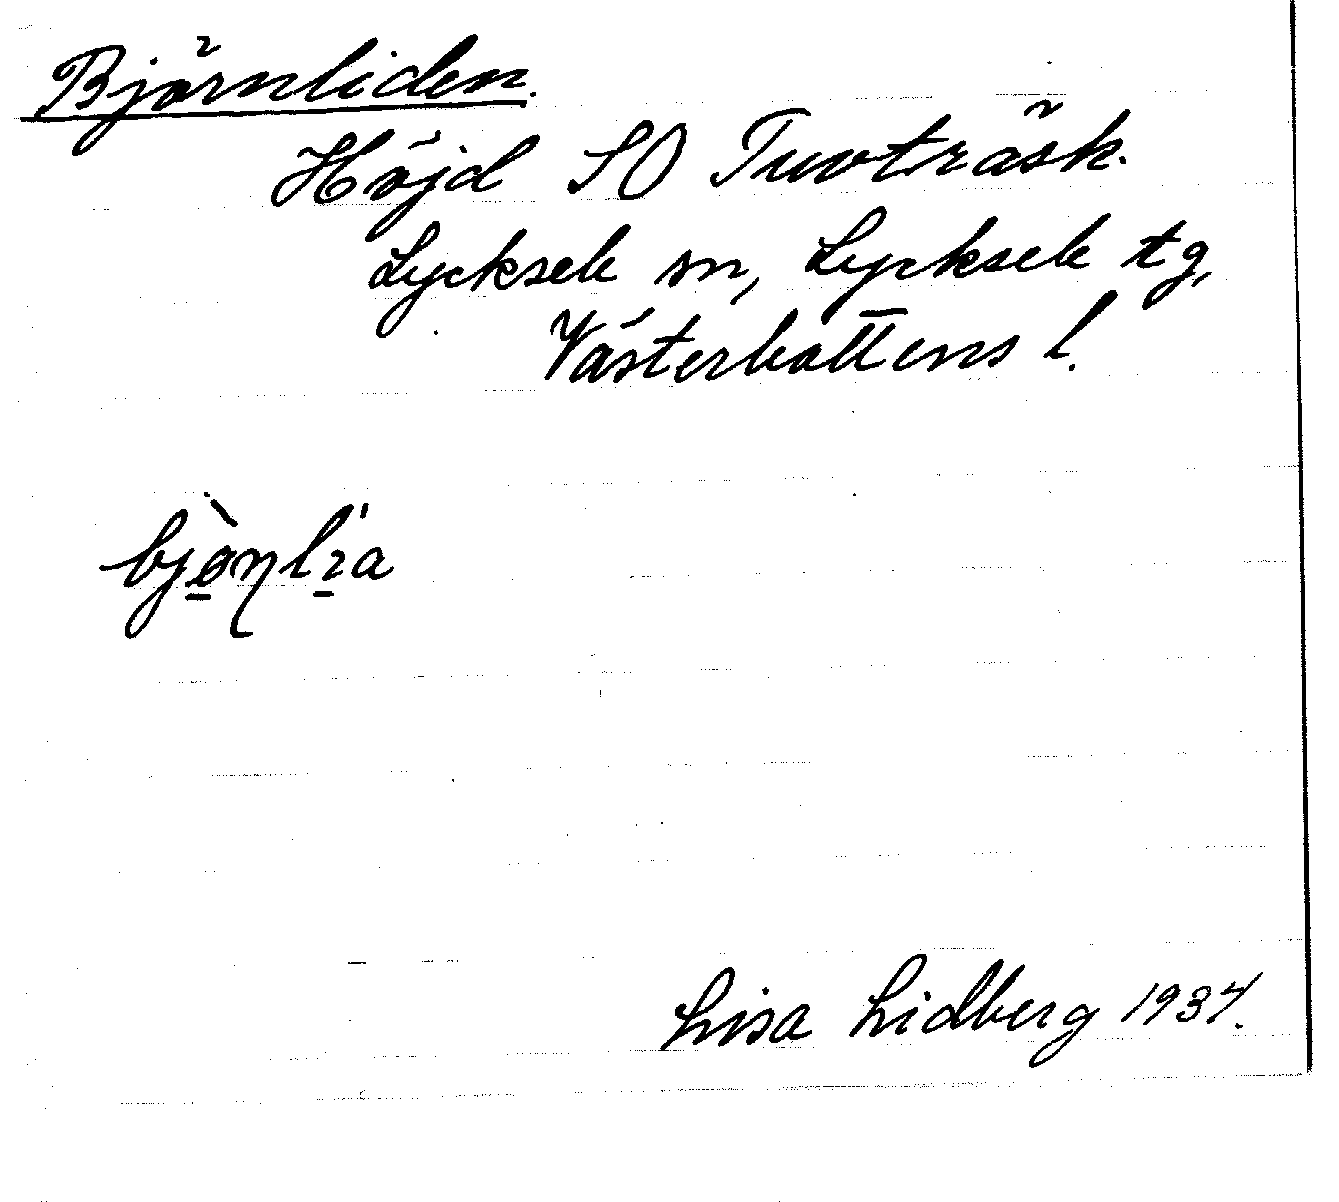 Björnliden.
Höjd SO Tuvträsk.
Lycksele sn, Lycksele tg,
Västerbottens l.
bjö̀ṇlía
Lisa Lidberg 1934.